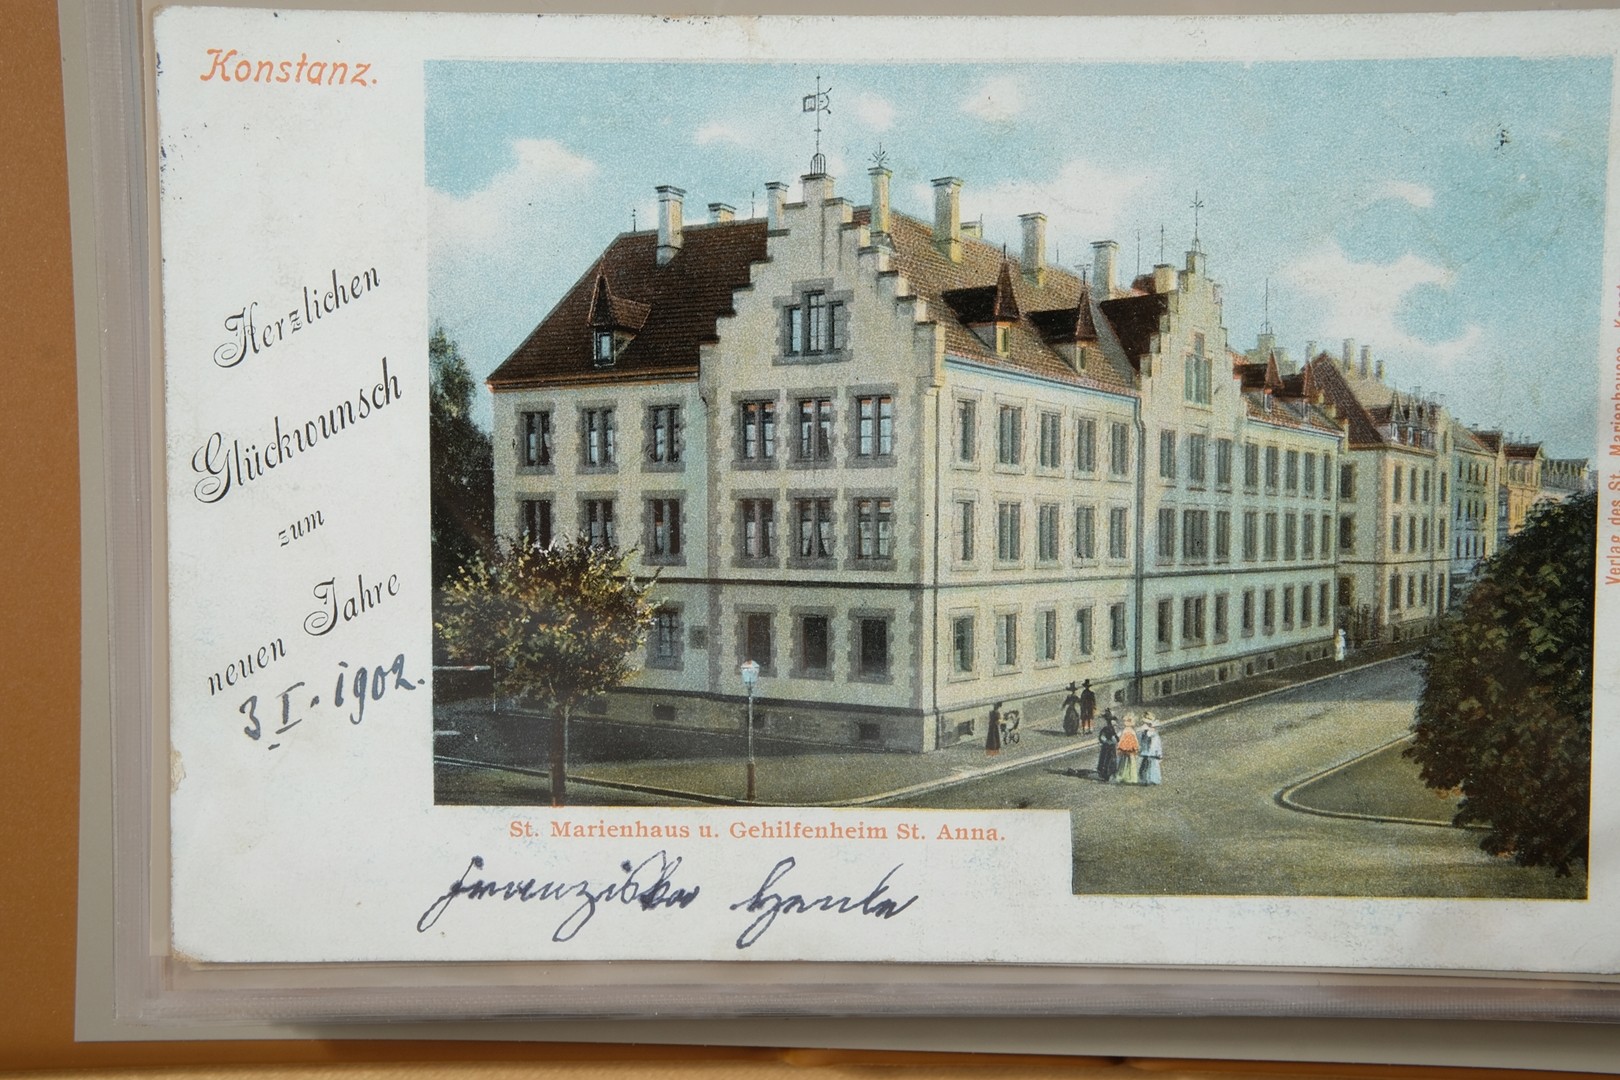 Konstanz.
Herzlichen
Glückwunsch
zum
neuen Jahre
3 I. 1902.
St. Marienhaus u. Gehilfenheim St. Anna.
Franziska
Verlag des St. Marienhauses